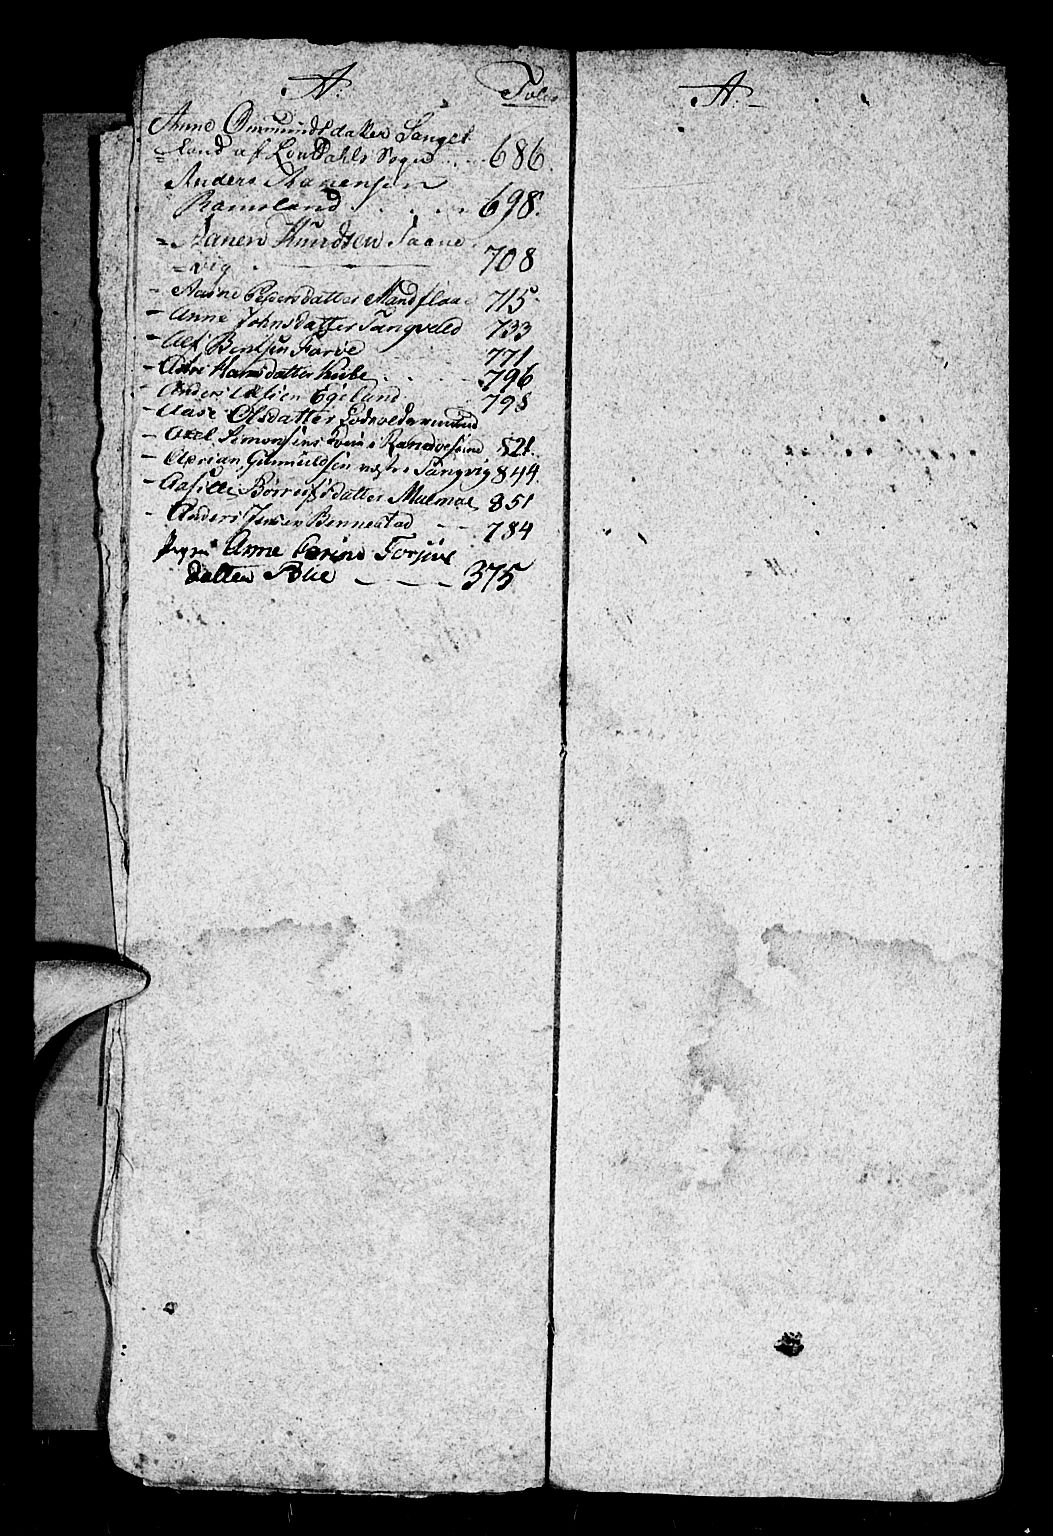 A. Folio
Anne Ommundsdatter Sanges
land af Loudahls Sogn 686.
Anders Aanensøn
Ramsland 698.
Aanen Knudsen Taane
vig 708
Aasne Pedersdatter Mandflaae 715.
Anne Johnsdatter Tangvald 733
Alf Bentsen Farøe 771
Hansdatter 796
Anders Egeland 798
Aase Olsdatter
Axel Simonsens 821.
Adrian Gunnuldsen Tangvig 844.
Aasille Børrufsdatter Malmøe 851
Anders Jensen Bennestad 784
Anne Torjus
datter 375
A.